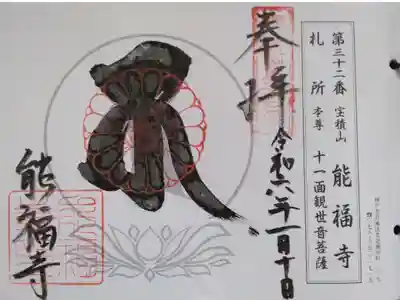 第三十二番 宝積山 能福寺
札所 本尊 十一面観世音菩薩
奉拝 令和六年一月十日
能福寺